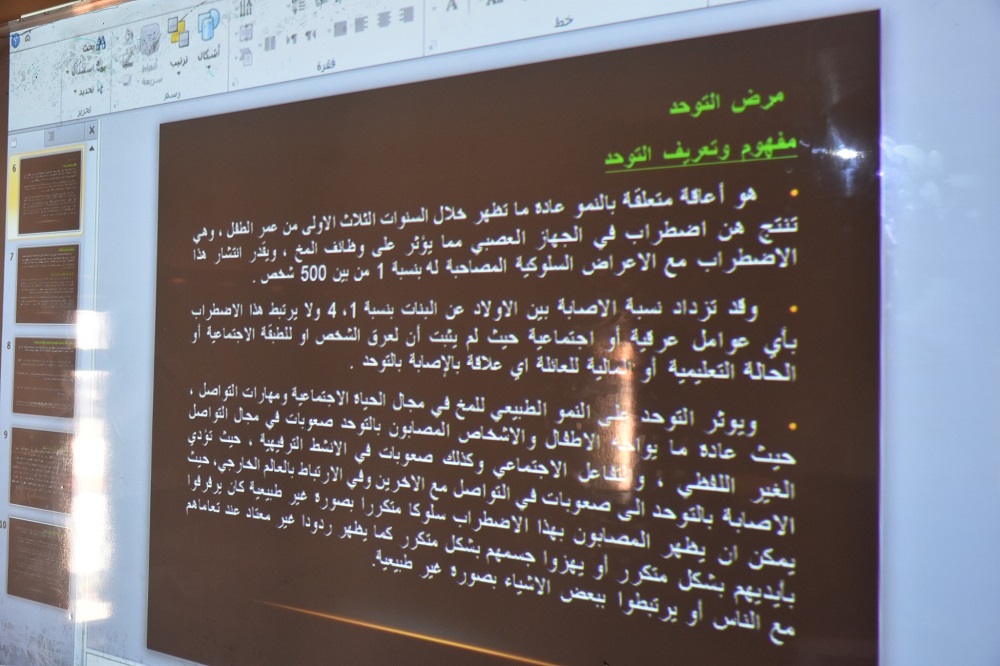 بحث
استبدال
تحديد
تحرير
أشكال
ترتيب
أنماط سريعة
رسم
فقرة
خط
6
7
8
9
10
مرض التوحد
مفهوم وتعريف التوحد
• هو أعاقة متعلقة بالنمو عاده ما تظهر خلال السنوات الثلاث الاولى من عمر الطفل ، وهي
تنتج هن اضطراب في الجهاز العصبي مما يؤثر على وظائف المخ ، ويقدر انتشار هذا
الاضطراب مع الاعراض السلوكية المصاحبة له بنسبة 1 من بين 500 شخص .
• وقد تزداد نسبة الاصابة بين الاولاد عن البنات بنسبة 1، 4 ولا يرتبط هذا الاضطراب
بأي عوامل عرقية أو اجتماعية حيث لم يثبت أن لعرق الشخص او للطبقة الاجتماعية أو
الحالة التعليمية أو المالية للعائلة اي علاقة بالإصابة بالتوحد .
• ويوثر التوحد على النمو الطبيعي للمخ في مجال الحياه الاجتماعية ومهارات التواصل ،
حيث عاده ما يواجه الاطفال والاشخاص المصابون بالتوحد صعوبات في مجال التواصل
الغير اللفظي ، والتفاعل الاجتماعي وكذلك صعوبات في الانشط الترفيهية ، حيث تؤدي
الاصابة بالتوحد الى صعوبات في التواصل مع الاخرين وفي الارتباط بالعالم الخارجي، حيث
يمكن ان يظهر المصابون بهذا الاضطراب سلوكا متكررا بصوره غير طبيعية كان يرفرفوا
بأيديهم بشكل متكرر أو يهزوا جسمهم بشكل متكرر كما يظهر ردودا غير معتاد عند تعاماهم
مع الناس أو يرتبطوا ببعض الاشياء بصوره غير طبيعية.